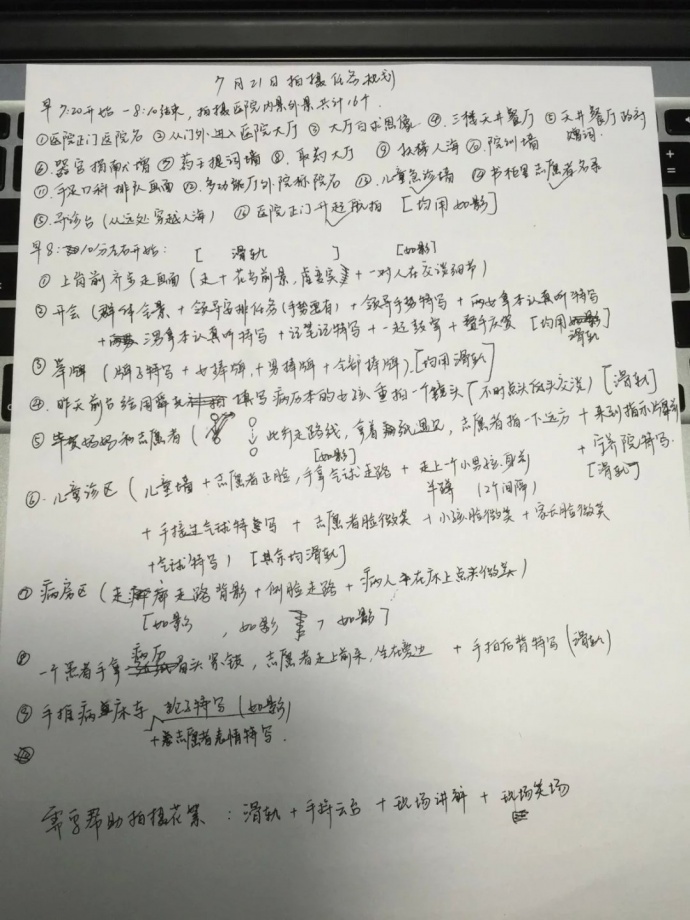 7月21日拍摄任务规划
早7:20开始 - 8:10结束, 拍摄医院内景外景共计16个.
①医院正门医院名 ②从门外进入医院大厅 ③大厅白求恩像 ④三楼天井餐厅 ⑤天井餐厅的
⑥器官捐献人墙 ⑦药于提词墙 ⑧取药大厅 ⑨扶梯人海 ⑩院训墙
⑪手足口科排队画面 ⑫多功能厅外院标院名 ⑬儿童急诊墙 ⑭书柜里志愿者名录
⑮导诊台(从远处穿越人海) ⑯医院正门升起航拍 [均用如影]
早8:10分左右开始: [ 滑轨 ] [如影]
①上岗前齐步走画面 (走+花当前景,虚变实 + 一对人在交谈细节)
②开会 (群体全景 + 领导安排任务(手势要有) + 领导手势特写 + 两女拿本认真听特写
+ 男拿本认真听特写 + 记笔记特写 + 一起鼓掌 + 整手 [均用滑轨]
③举牌 (牌子特写 + 女捧牌, + 男捧牌 + 全部捧牌). [均用滑轨]
④昨天前台给用 填写病历本的女孩重拍一个镜头 (不时点头低头交谈) [滑轨]
⑤ 妈妈和志愿者 ( 此行走路线, 拿着 遇见, 志愿者指一下远方 + 来到指示牌
[如影] + 特写. [滑轨]
⑥儿童诊区 (儿童墙 + 志愿者正脸, 手拿气球走路 + 走上一个小男孩身前
半蹲 (2个间隔)
+ 手接过气球特写 + 志愿者脸微笑 + 小孩脸微笑 + 家长脸微笑
+ 气球特写) [其余均滑轨]
⑦病房区 (走 走路背影 + 侧脸走路 + 病人 在床上点头微笑)
[如影 , 如影 , 如影]
⑧一个患者手拿病历眉头紧锁, 志愿者走上前来, 坐在旁边 + 手拍后背特写 (滑轨)
⑨手推病床车 轮子特写 (如影)
+ 志愿者表情特写.
需要帮助拍摄花絮: 滑轨 + 手持云台 + 现场讲解 + 现场笑场